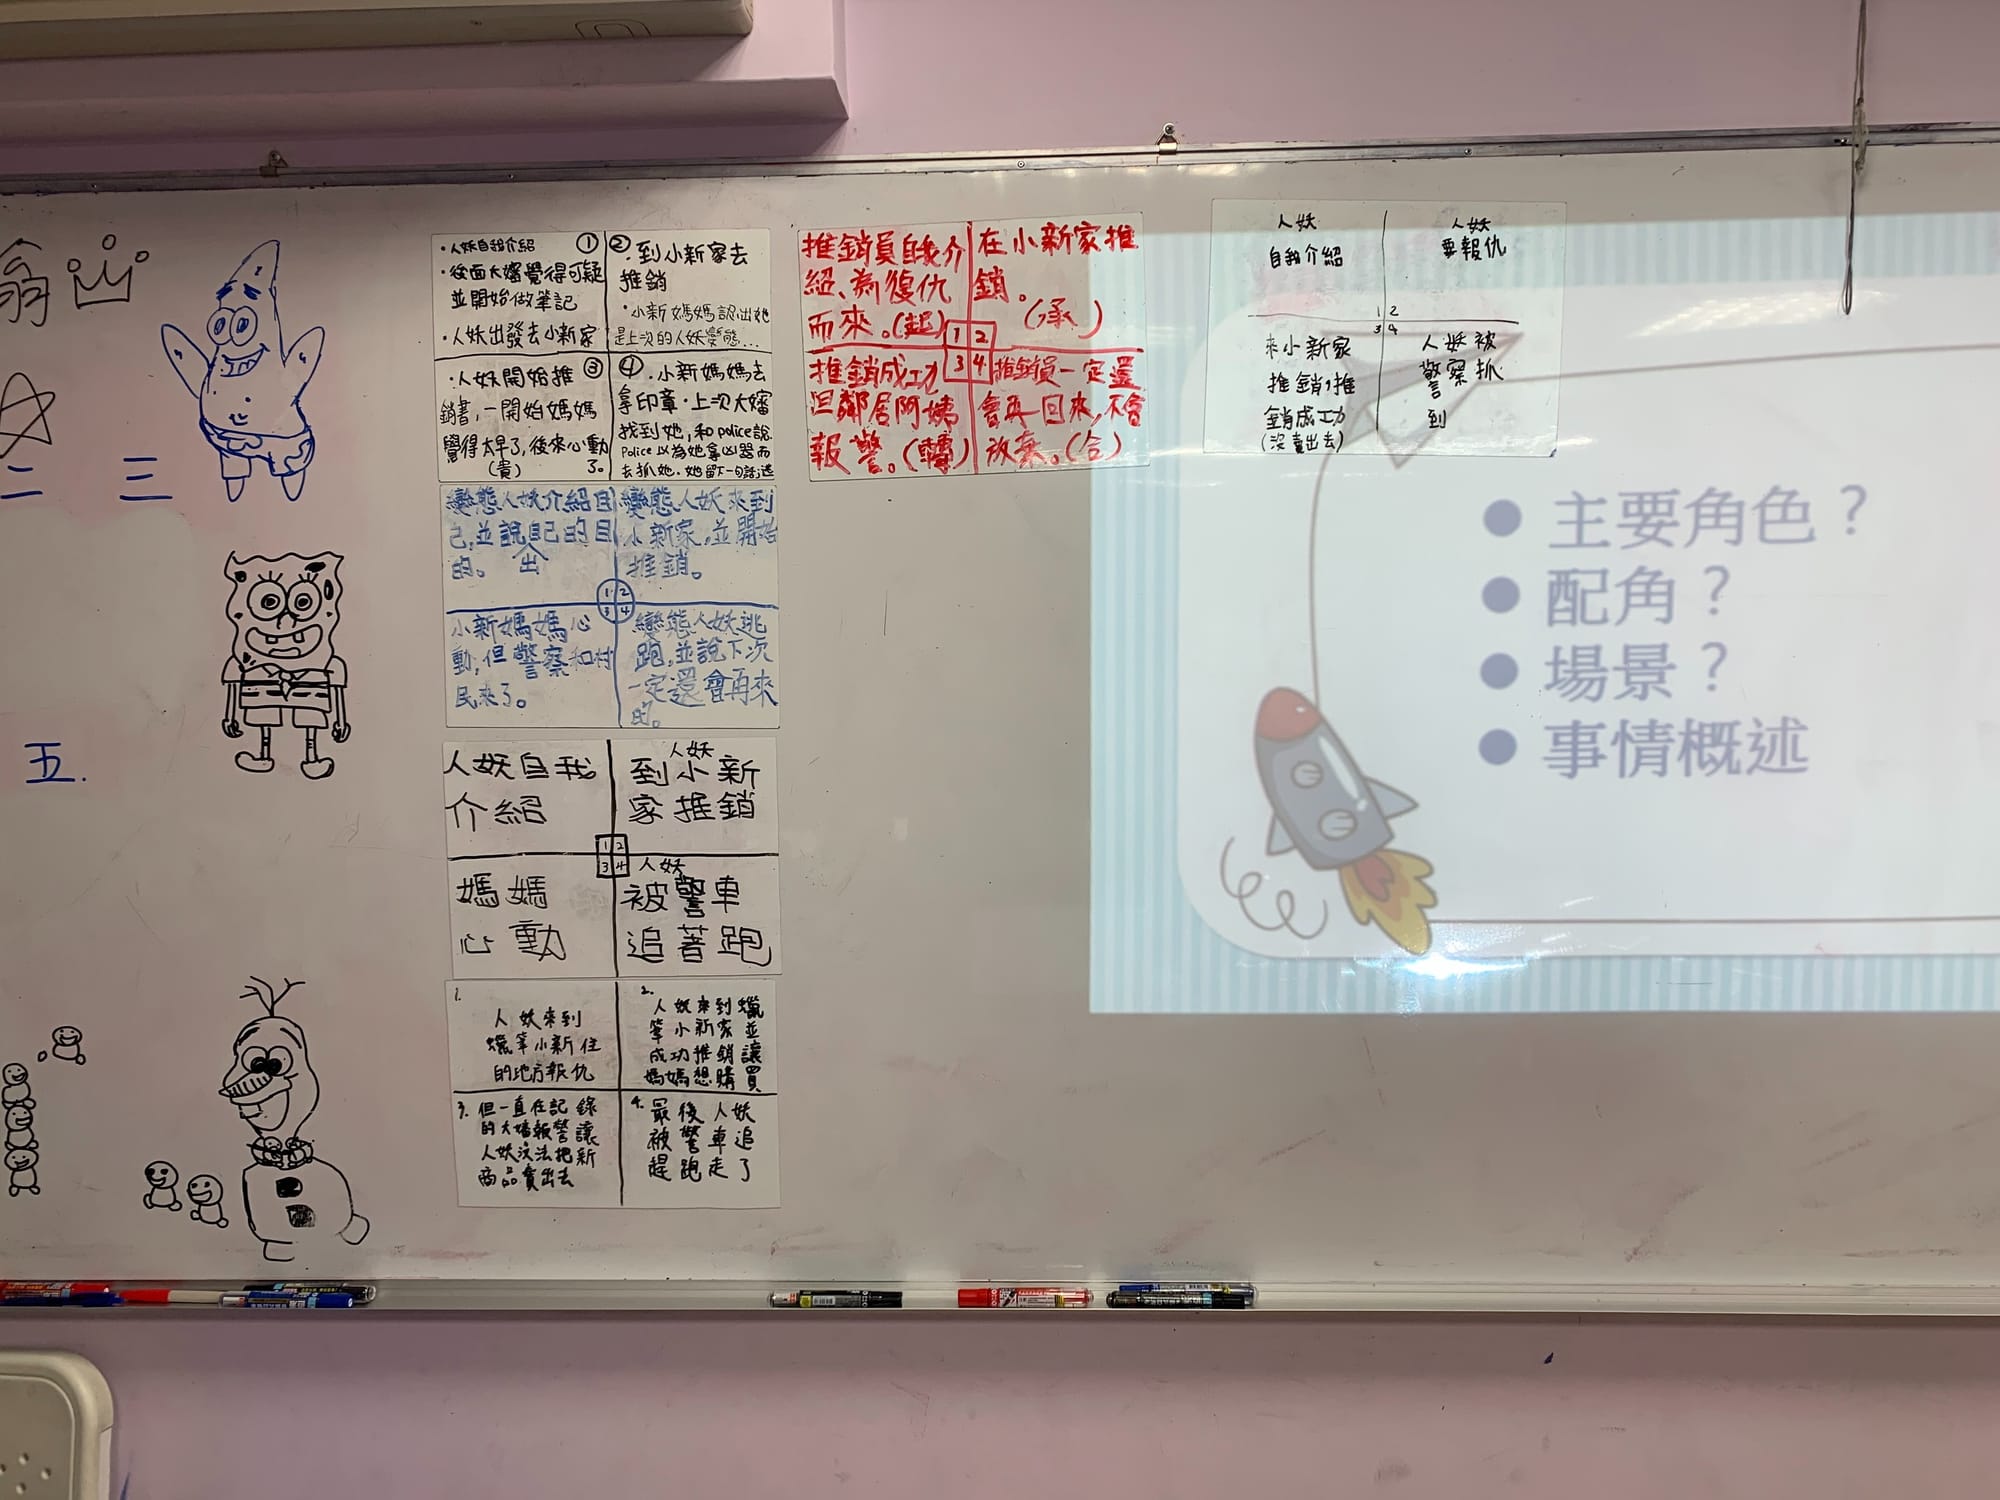 翁
二 三
五.
・人妖自我介紹 ①
・後面大嬸覺得可疑
並開始做筆記
・人妖出發去小新家
②・到小新家去
推銷
・小新媽媽認出她
是上次的人妖變態...
・人妖開始推 ③
銷書,一開始媽媽
覺得太早了,後來心動
(貴) 了。
④・小新媽媽去
拿印章・上次大嬸
找到她,和police說
Police以為她拿凶器而
去抓她.她留下一句話,逃
變態人妖介紹自
己,並說自己的目
的。 出
變態人妖來到
小新家,並開始
推銷。
1 2
3 4
小新媽媽心
動,但警察和村
民來了。
變態人妖逃
跑,並說下次
一定還會再來
的。
人妖自我
介紹
人妖
到小新
家推銷
1 2
3 4
媽媽
心動
人妖
被警車
追著跑
1.
人妖來到
蠟筆小新住
的地方報仇
2.
人妖來到蠟
筆小新家並
成功推銷讓
媽媽想購買
3. 但一直在記錄
的大嬸報警讓
人妖沒法把新
商品賣出去
4. 最後人妖
被警車追
趕跑走了
推銷員自我介
紹、為復仇
而來。(起)
在小新家推
銷。
(承)
1 2
3 4
推銷成功
但鄰居阿姨
報警。(轉)
推銷員一定還
會再回來,不會
放棄。(合)
人妖
自我介紹
人妖
要報仇
1 2
3 4
來小新家
推銷,推
銷成功
(沒賣出去)
人妖被
警察抓
到
● 主要角色？
● 配角？
● 場景？
● 事情概述